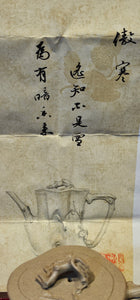 傲寒
遙知不是雪
為有暗香來